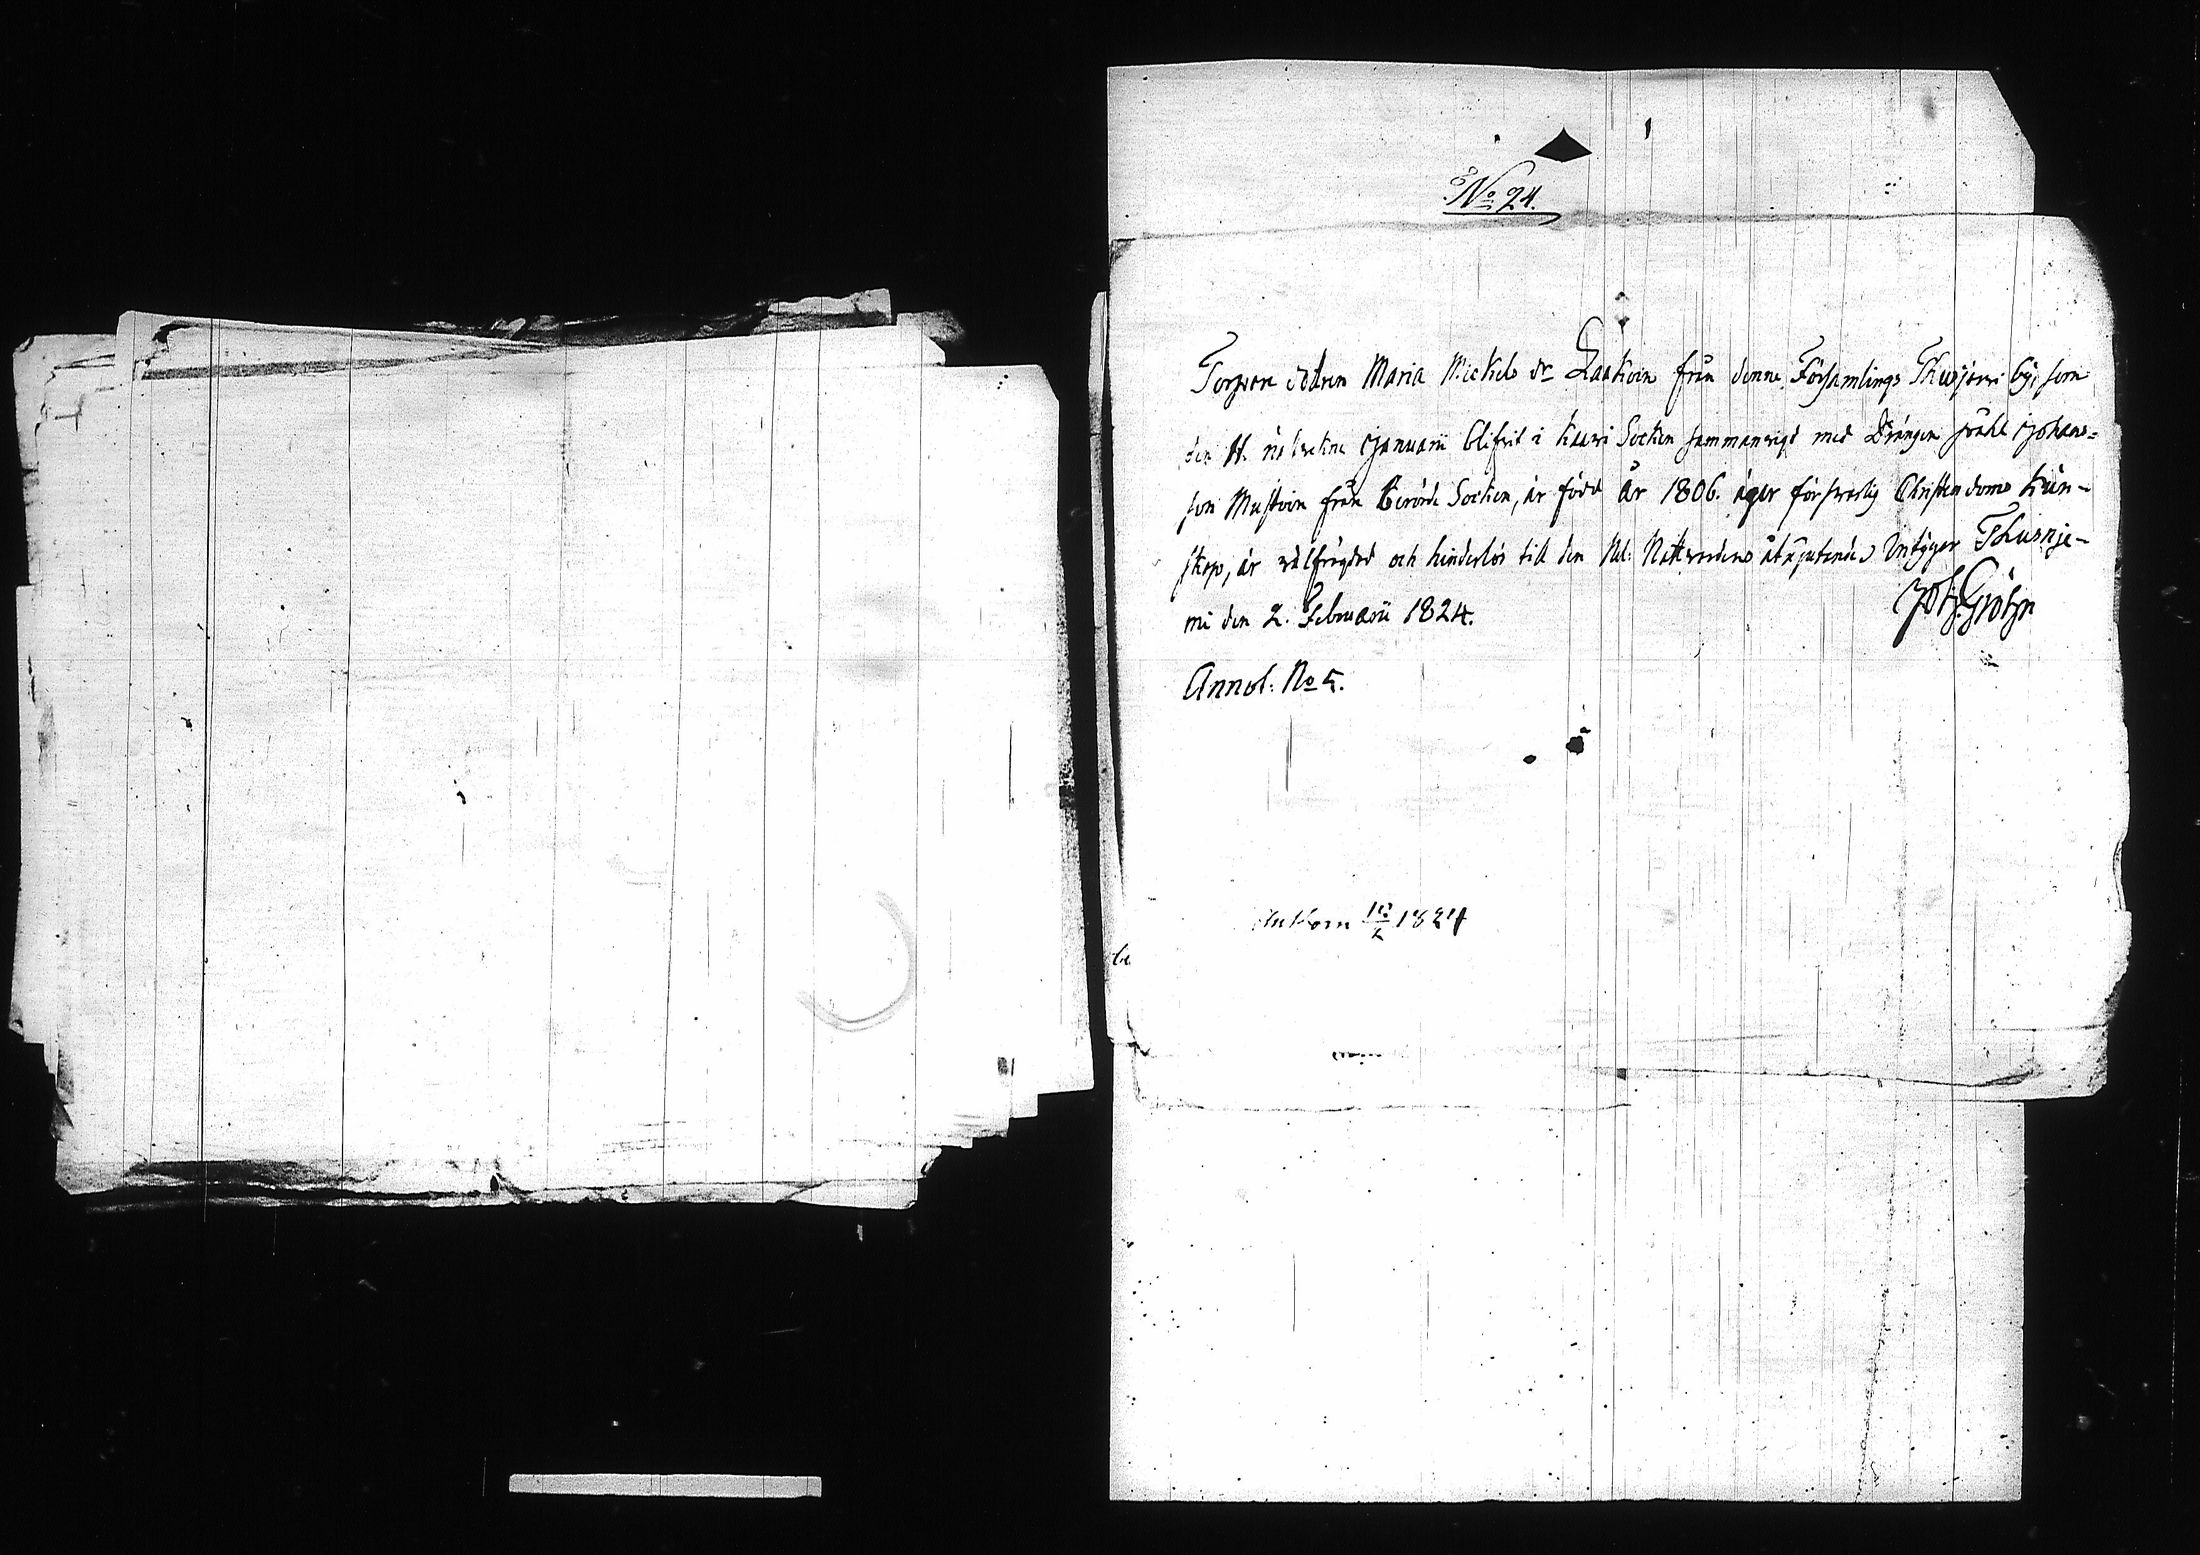 No 24.
Torpare dottren Maria Mickels dr Laakoin från denna Församlings Thusjerwi by, som
den 11. Januarii blifvit i Kaavi Socken sammanvigd med Drängen Påhl Johans=
son Mustoin från berörde Socken, är född År 1806. äger försvarlig Christendoms kün-
skap, är välfrägdad och hinderlös till den Hel: Nattvardens åtnjutande Intÿgar Thusnje-
mi den 2. Februarii 1824.
Joh. Gröhn
Annot: No 5.
Ankom 10/2 1824